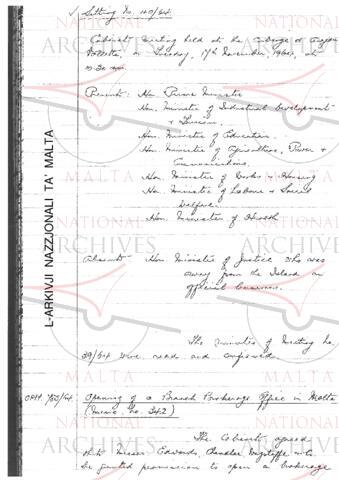 Sitting No. 40/64.
Cabinet meeting held at the Auberge d'Aragon
Valletta, on Tuesday, 17th November, 1964, at
9.30 am.
Present: Hon. Prime Minister
Hon. Minister of Industrial Development
& Tourism.
Hon. Minister of Education.
Hon. Minister of Agriculture, Power &
Communications.
Hon. Minister of Works & Housing
Hon. Minister of Labour & Social
Welfare.
Hon. Minister of Health
Absent: Hon. Minister of Justice who was
away from the Island on
official business.
The minutes of Meeting No.
39/64 were read and confirmed.
OPM. /64. Opening of a Branch Brokerage Office in Malta
(Memo. No. 342)
The Cabinet agreed
that Messrs Edwards, Chandler
be granted permission to open a brokerage
L-ARKIVJI NAZZJONALI TA' MALTA
NATIONAL
ARCHIVES
MALTA